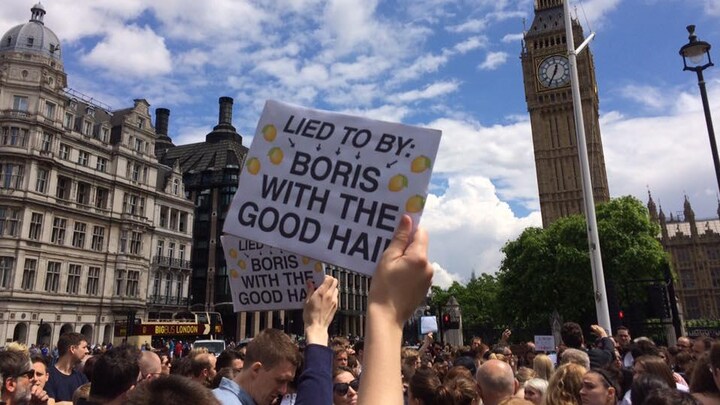 LIED TO BY:
BORIS
WITH THE
GOOD HAI
LIED TO BY
BORIS
WITH THE
GOOD HA
BIGBUS LONDON